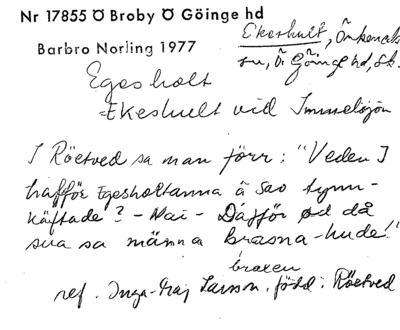 Nr 17855 Ö Broby Ö Göinge hd
Barbro Norling 1977
Ekeshult, Örkeneds
sn, Ö Göinge hd, Sk.
Egesholt
=Ekeshult vid Immelsjön
I Röetved sa man förr: "Veden I
hafför Egesholtanna ä sao tynn-
käftade? - Nai - Däfför ød då
sua sa männa brasna-hude!"
braxen
ref. Inga-Maj Larsson, född i Röetved